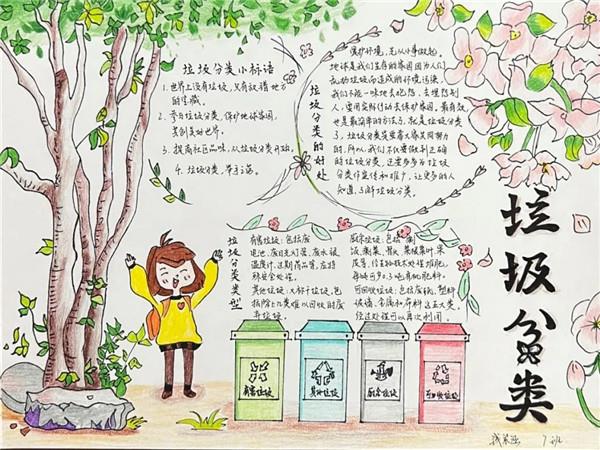 垃圾分类小标语
1. 世界上没有垃圾，只有放错地方
的宝藏。
2. 参与垃圾分类，保护地球家园，
共创美好世界。
3. 提高社区品味，从垃圾分类开始。
4. 垃圾分类，举手之劳。
垃圾分类的好处
保护环境，无从小事做起。
地球是我们生存的家园因为人们
乱扔垃圾而造成的环境污染。
我们不能一味地去抱怨，去埋怨别
人，要用实际行动去保护家园。最有效，
也是最简单的方法了，就是垃圾分类
了，垃圾分类是需大家共同努力
的，所以我们不仅要做到正确
的垃圾分类，还要多多为垃圾
分类作宣传和维护，让更多的人
知道，了解垃圾分类。
垃圾分类
垃圾分类类型
有害垃圾：包括废
电池、废日光灯管、废水银
温度计、过期药品等，应特
殊安全处理。
其他垃圾：又称干垃圾，包
括除上几类难以回收的废
弃垃圾。
厨余垃圾：包括剩
饭、剩菜、骨头、菜根菜叶、果
皮等，经生物技术处理堆肥，
每吨可产0.3吨有机肥料。
可回收垃圾：包括废纸，塑料
玻璃、金属和布料这五大类。
经过处理可以再次利用。
有害垃圾
其他垃圾
厨余垃圾
可回收垃圾
7班